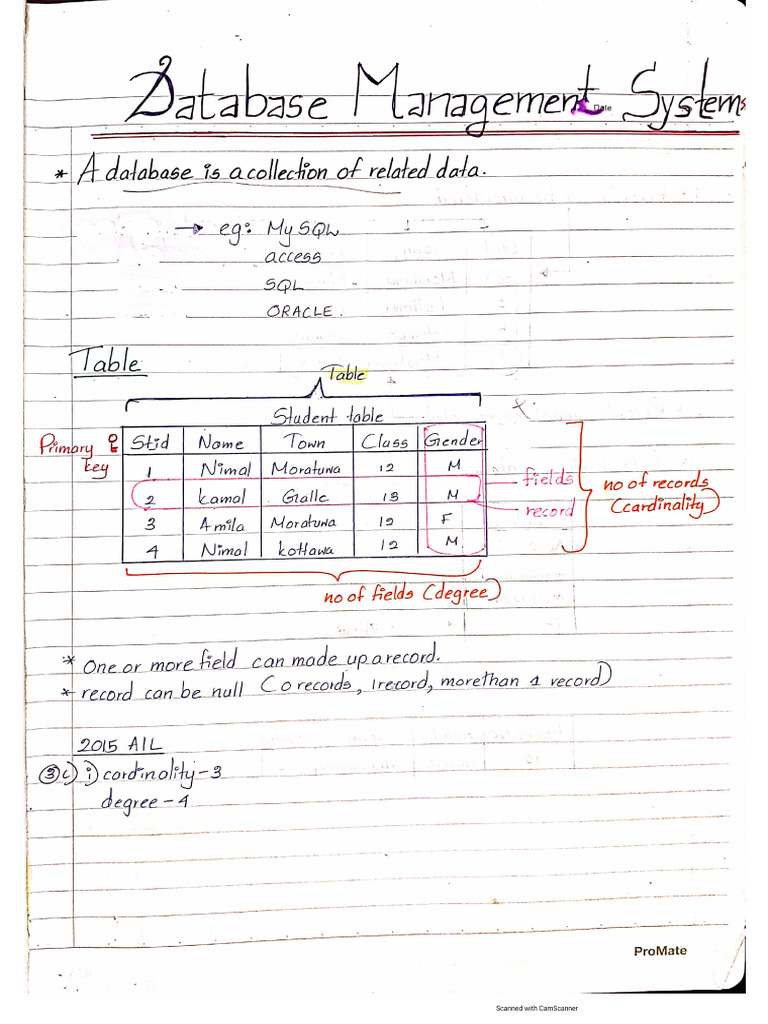 Database Management Systems
Date
* A database is a collection of related data.
→ eg: MySQL
access
SQL
ORACLE.
Table
Table
Student table
Primary key
Stid Name Town Class Gender
1 Nimal Moratuwa 12 M
2 Kamal Galle 13 M
3 Amila Moratuwa 12 F
4 Nimal Kottawa 12 M
fields
record
no of records
(cardinality)
no of fields (degree)
* One or more field can made up a record.
* record can be null (0 records, 1 record, more than 1 record)
2015 A/L
③c) i) cardinality - 3
degree - 4
ProMate
Scanned with CamScanner